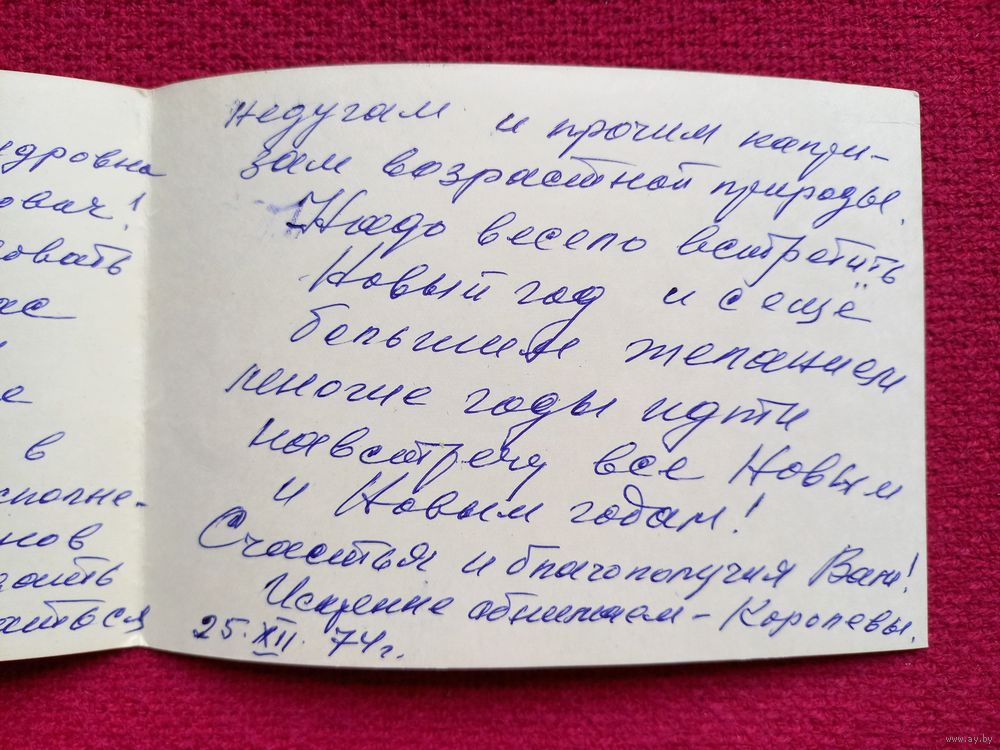 дровна
ович!
овать
ас
е
в
сполне-
нов
зать
аться
недугам и прочим капри-
зам возрастной природы.
Надо весело встретить
Новый год и с ещё
большим желанием
многие годы идти
навстречу все Новым
и Новым годам!
Счастья и благополучия Вам!
Искренне обнимаем – Королевы.
25. XII. 74г.
www.ay.by